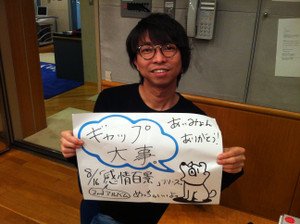 ギャップ
大事.
あいみょん
ありがとう!
8/16 感情百景
リリース
めっちゃいいよ